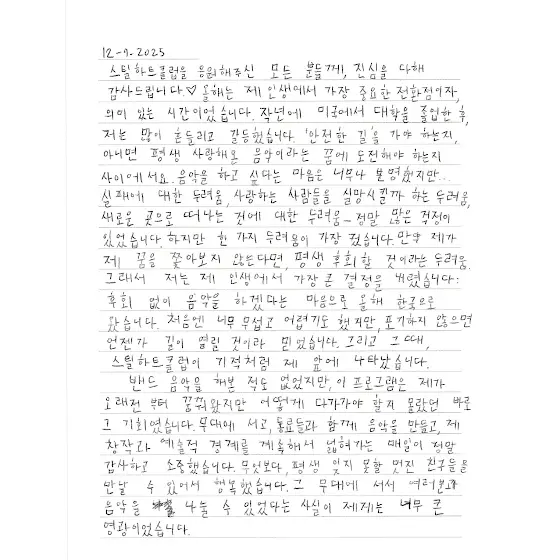 12-9-2025
스틸하트클럽을 응원해주신 모든 분들께, 진심을 다해
감사드립니다.♡ 올해는 제 인생에서 가장 중요한 전환점이자,
의미 있는 시간이었습니다. 작년에 미국에서 대학을 졸업한 후,
저는 많이 흔들리고 갈등했습니다. '안전한 길'을 가야 하는지,
아니면 평생 사랑해온 음악이라는 꿈에 도전해야 하는지
사이에서요. 음악을 하고 싶다는 마음은 너무나 분명했지만...
실패에 대한 두려움, 사랑하는 사람들을 실망시킬까 하는 두려움,
새로운 곳으로 떠나는 것에 대한 두려움- 정말 많은 걱정이
있었습니다. 하지만 한 가지 두려움이 가장 컸습니다. 만약 제가
제 꿈을 쫓아보지 않는다면, 평생 후회할 것이라는 두려움.
그래서 저는 제 인생에서 가장 큰 결정을 내렸습니다:
후회 없이 음악을 하겠다는 마음으로 올해 한국으로
왔습니다. 처음엔 너무 무섭고 어렵기도 했지만, 포기하지 않으면
언젠가 길이 열릴 것이라 믿었습니다. 그리고 그때,
스틸하트클럽이 기적처럼 제 앞에 나타났습니다.
밴드 음악을 해본 적도 없었지만, 이 프로그램은 제가
오래전부터 꿈꿔왔지만 어떻게 다가가야 할지 몰랐던 바로
그 기회였습니다. 무대에 서고, 동료들과 함께 음악을 만들고, 제
창작과 예술적 경계를 계속해서 넓혀가는 매일이 정말
감사하고 소중했습니다. 무엇보다, 평생 잊지 못할 멋진 친구들을
만날 수 있어서 행복했습니다. 그 무대에 서서 여러분과
음악을 나눌 수 있었다는 사실이 제게는 너무 큰
영광이었습니다.